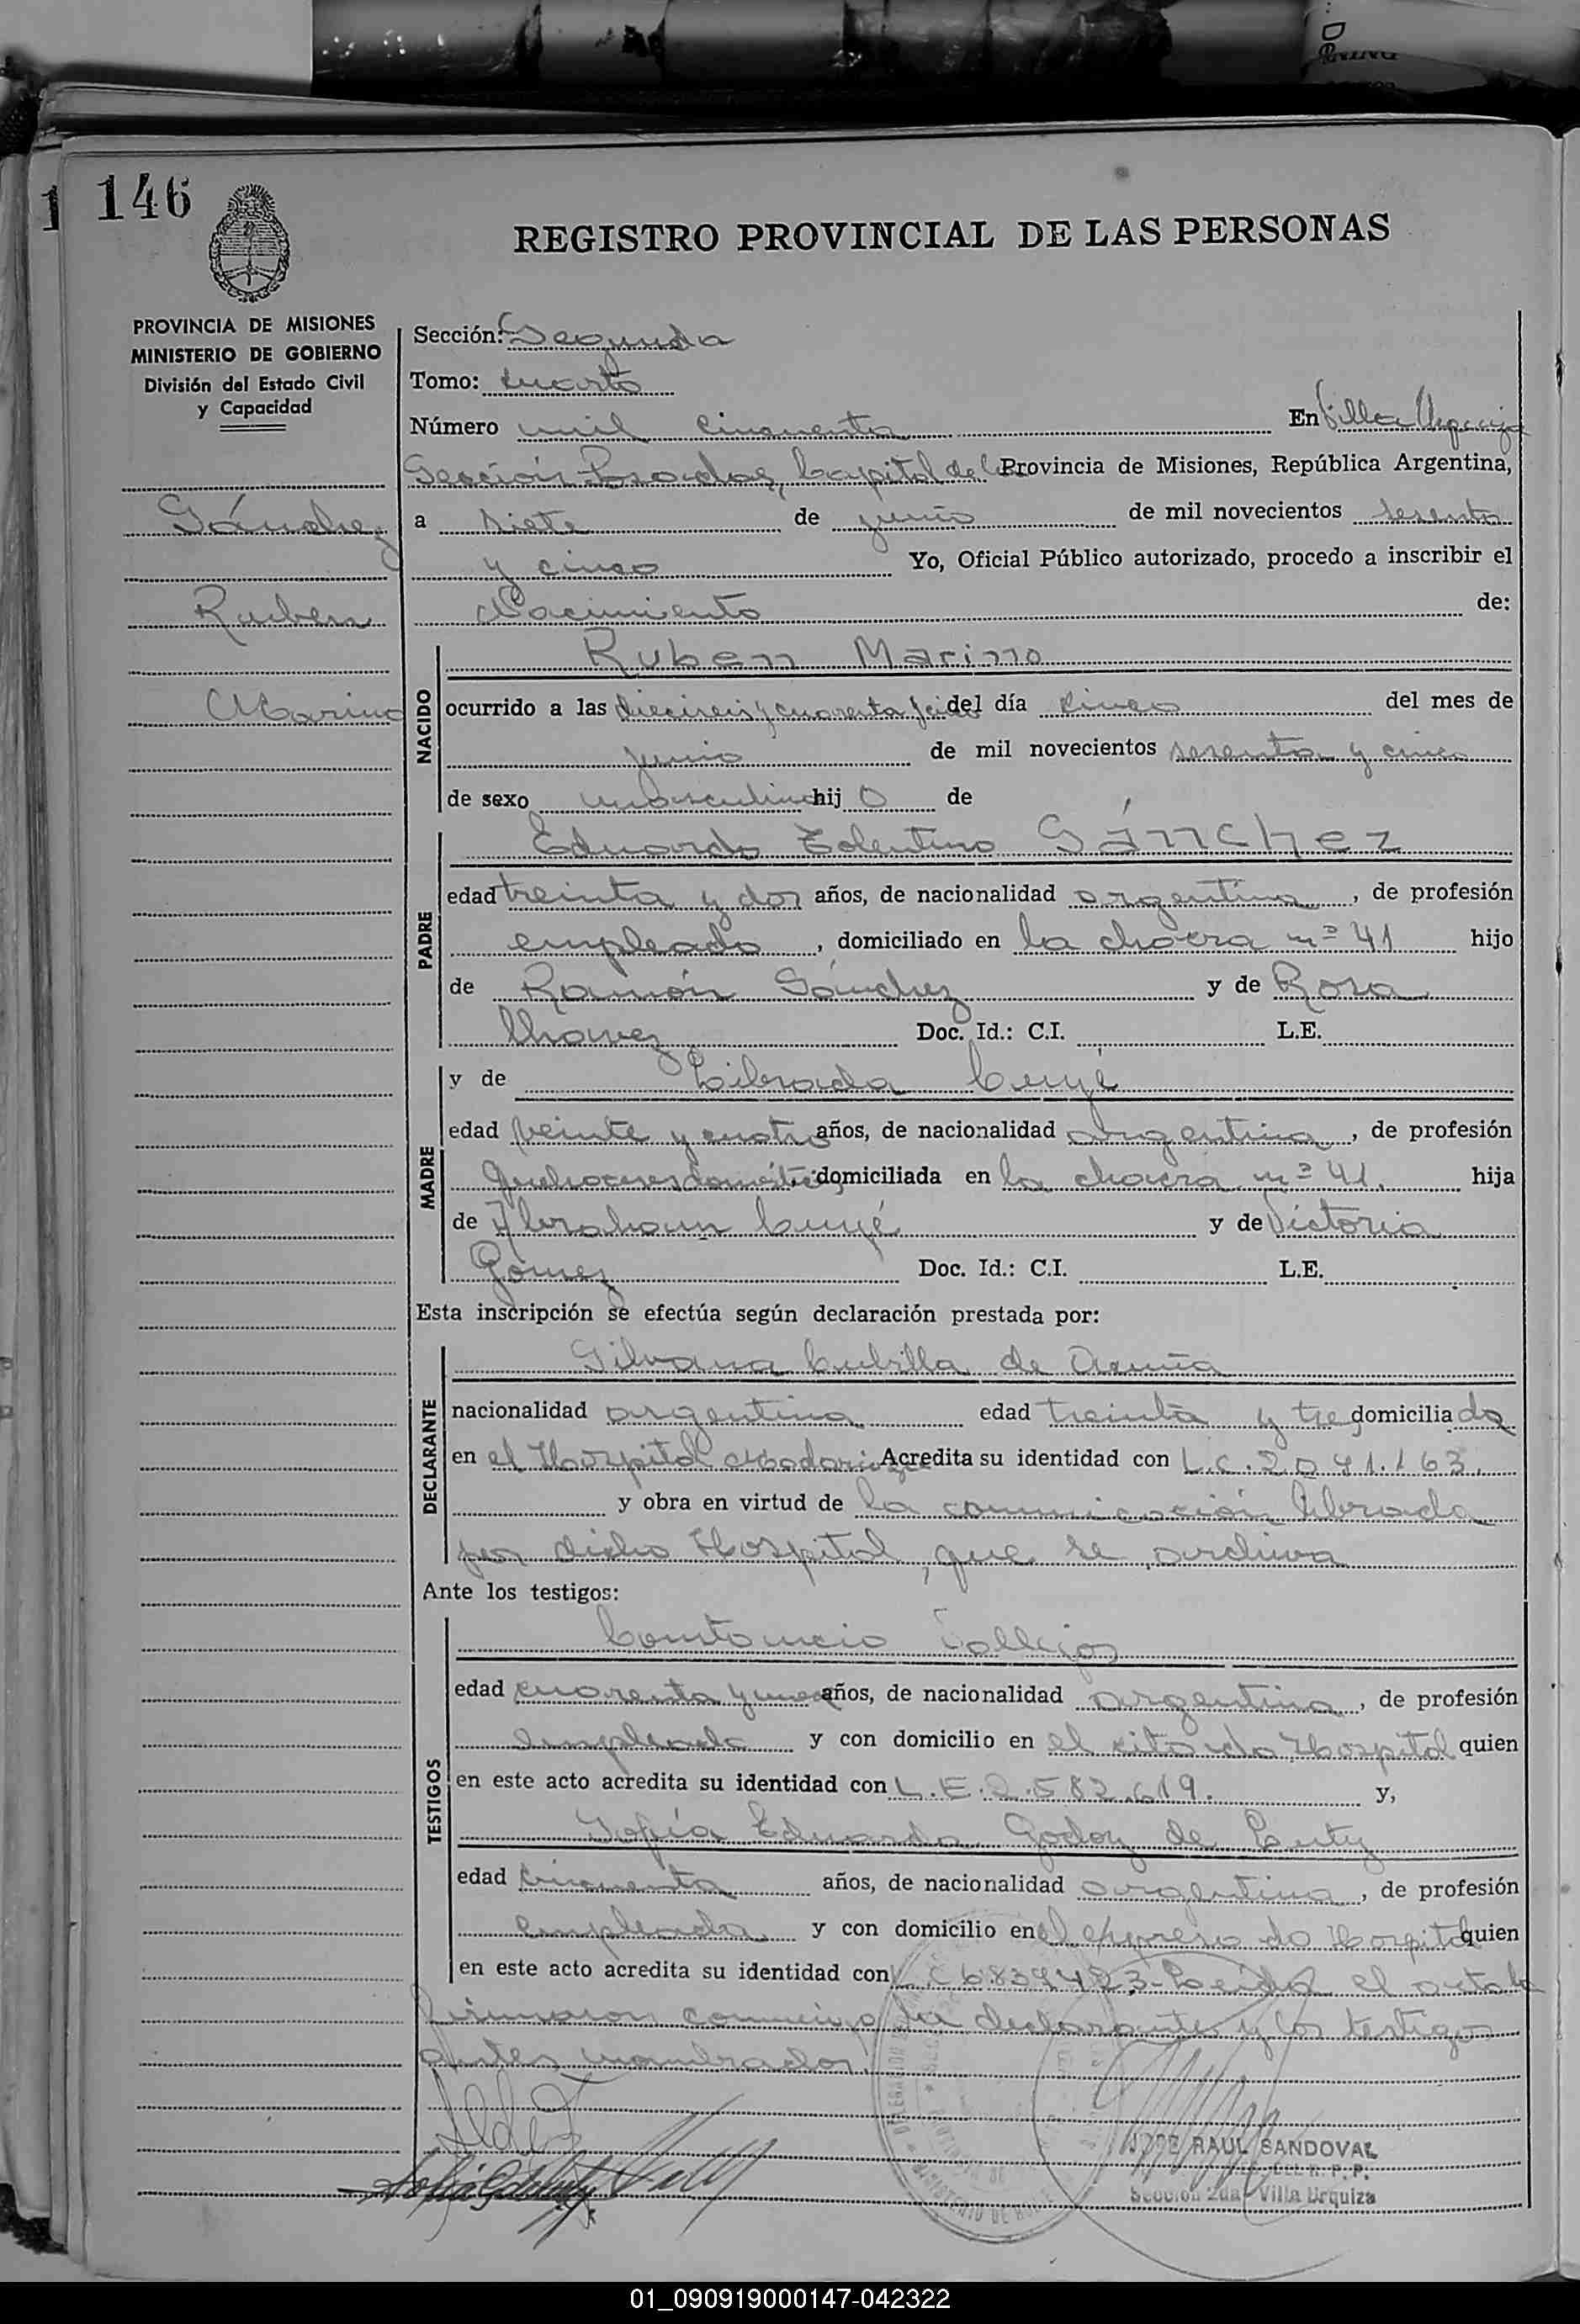 146
REGISTRO PROVINCIAL DE LAS PERSONAS
PROVINCIA DE MISIONES
MINISTERIO DE GOBIERNO
División del Estado Civil
y Capacidad
Sánchez
Ruben
Marino
Sección: Segunda
Tomo: cuarto
Número mil cincuenta En Villa Urquiza
Sección Posadas, Capital de la Provincia de Misiones, República Argentina,
a siete de junio de mil novecientos sesenta
y cinco Yo, Oficial Público autorizado, procedo a inscribir el
Nacimiento de:
NACIDO
Ruben Marino
ocurrido a las dieciseis y cuarenta del día cinco del mes de
junio de mil novecientos sesenta y cinco
de sexo masculino hijo de
PADRE
Eduardo Tolentino Sánchez
edad treinta y dos años, de nacionalidad argentina, de profesión
empleado, domiciliado en la chacra nº 41 hijo
de Ramón Sánchez y de Rosa
Chavez Doc. Id.: C.I. L.E.
MADRE
y de Librada Cuyé
edad veinte y cuatro años, de nacionalidad argentina, de profesión
Quehaceres domésticos, domiciliada en la chacra nº 41. hija
de Abraham Cuyé y de Victoria
Gómez Doc. Id.: C.I. L.E.
Esta inscripción se efectúa según declaración prestada por:
DECLARANTE
Silvana Cubilla de Acuña
nacionalidad argentina edad treinta y tres domiciliada
en el Hospital Madariaga Acredita su identidad con L.C. 2.041.163.
y obra en virtud de la comunicación librada
por dicho Hospital, que se archiva
Ante los testigos:
TESTIGOS
Constancio Vallejos
edad cuarenta y años, de nacionalidad argentina, de profesión
empleado y con domicilio en el citado Hospital quien
en este acto acredita su identidad con L.E. 2.582.619. y,
Sofía Eduarda Godoy de
edad cincuenta años, de nacionalidad argentina, de profesión
empleada y con domicilio en el expresado Hospital quien
en este acto acredita su identidad con L.C 6839423- Leída el acta la
firmaron conmigo la declarante y los testigos
antes nombrados.
JOSE RAUL SANDOVAL
DEL R. P. P.
Sección 2da - Villa Urquiza
01_090919000147-042322